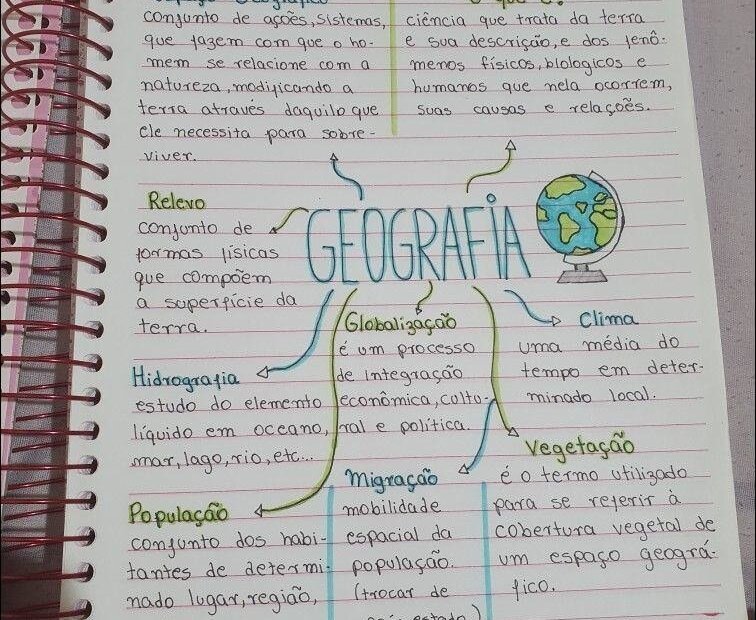 conjunto de ações, sistemas,
que fazem com que o ho-
mem se relacione com a
natureza, modificando a
terra através daquilo que
ele necessita para sobre-
viver.
ciência que trata da terra
e sua descrição, e dos fenô-
menos físicos, biologicos e
humanos que nela ocorrem,
suas causas e relações.
GEOGRAFIA
Relevo
conjunto de
formas físicas
que compõem
a superfície da
terra.
Globalização
é um processo
de integração
econômica, cultu-
ral e política.
Clima
uma média do
tempo em deter-
minado local.
Hidrografia
estudo do elemento
líquido em oceano,
mar, lago, rio, etc...
Migração
mobilidade
espacial da
população.
(trocar de
estado)
Vegetação
é o termo utilizado
para se referir à
cobertura vegetal de
um espaço geográ-
fico.
População
conjunto dos habi-
tantes de determi-
nado lugar, região,